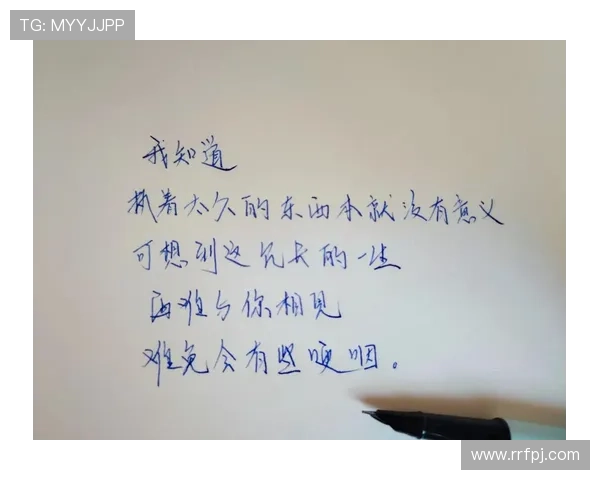 TG: MYYJJPP
我知道
执着太久的东西本就没有意义
可想到这冗长的一生
再难与你相见
难免会有些哽咽。
www.rrfpj.com